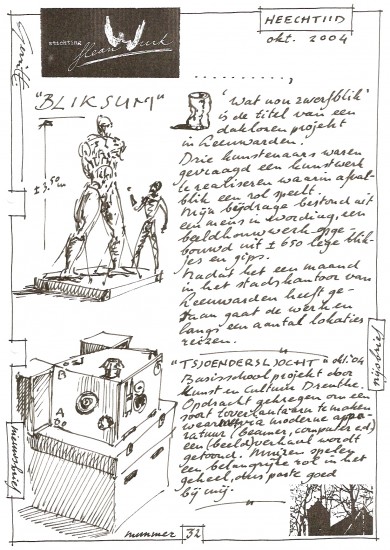 stichting
HEECHTIID
okt. 2004
"BLIKSUM"
± 3.50 m
'Wat nou zwerfblik'
is de titel van een
daklozen projekt
in Leeuwarden.
Drie kunstenaars waren
gevraagd een kunstwerk
te realiseren waarin afval-
blik een rol speelt.
Mijn bijdrage bestond uit
een mens in wording, een
beeldhouwwerk opge-
bouwd uit ± 650 lege blik-
jes en gips.
Nadat het een maand
in het stadskantoor van
Leeuwarden heeft ge-
staan gaat de werken
langs een aantal lokaties
reizen.
"TSJOENDERSLJOCHT" okt. '04
Basisschool projekt door
Kunst en Cultuur Drenthe.
Opdracht gekregen om een
soort toverlantaarn te maken
waar via moderne appa-
ratuur (beamer, computer ed)
een (beeld)verhaal wordt
getoond. Muizen spelen
een belangrijke rol in het
geheel, dus paste goed
bij mij.
A
B
A
nijsbrief
nieuwsbrief
nummer 32